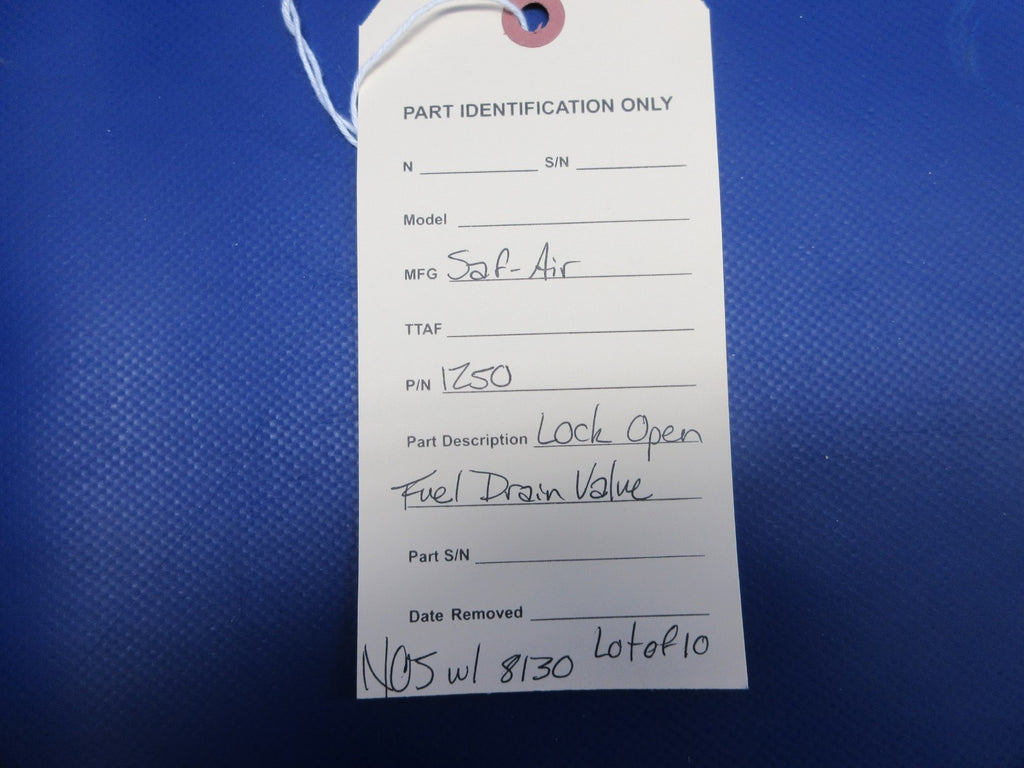 PART IDENTIFICATION ONLY
N S/N
Model
MFG Saf-Air
TTAF
P/N 1250
Part Description Lock Open
Fuel Drain Valve
Part S/N
Date Removed
NOS w/ 8130 Lot of 10